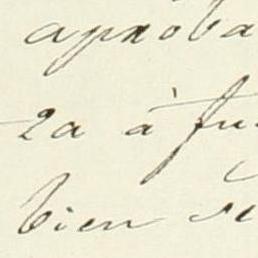 aproba
za à fu
bien se